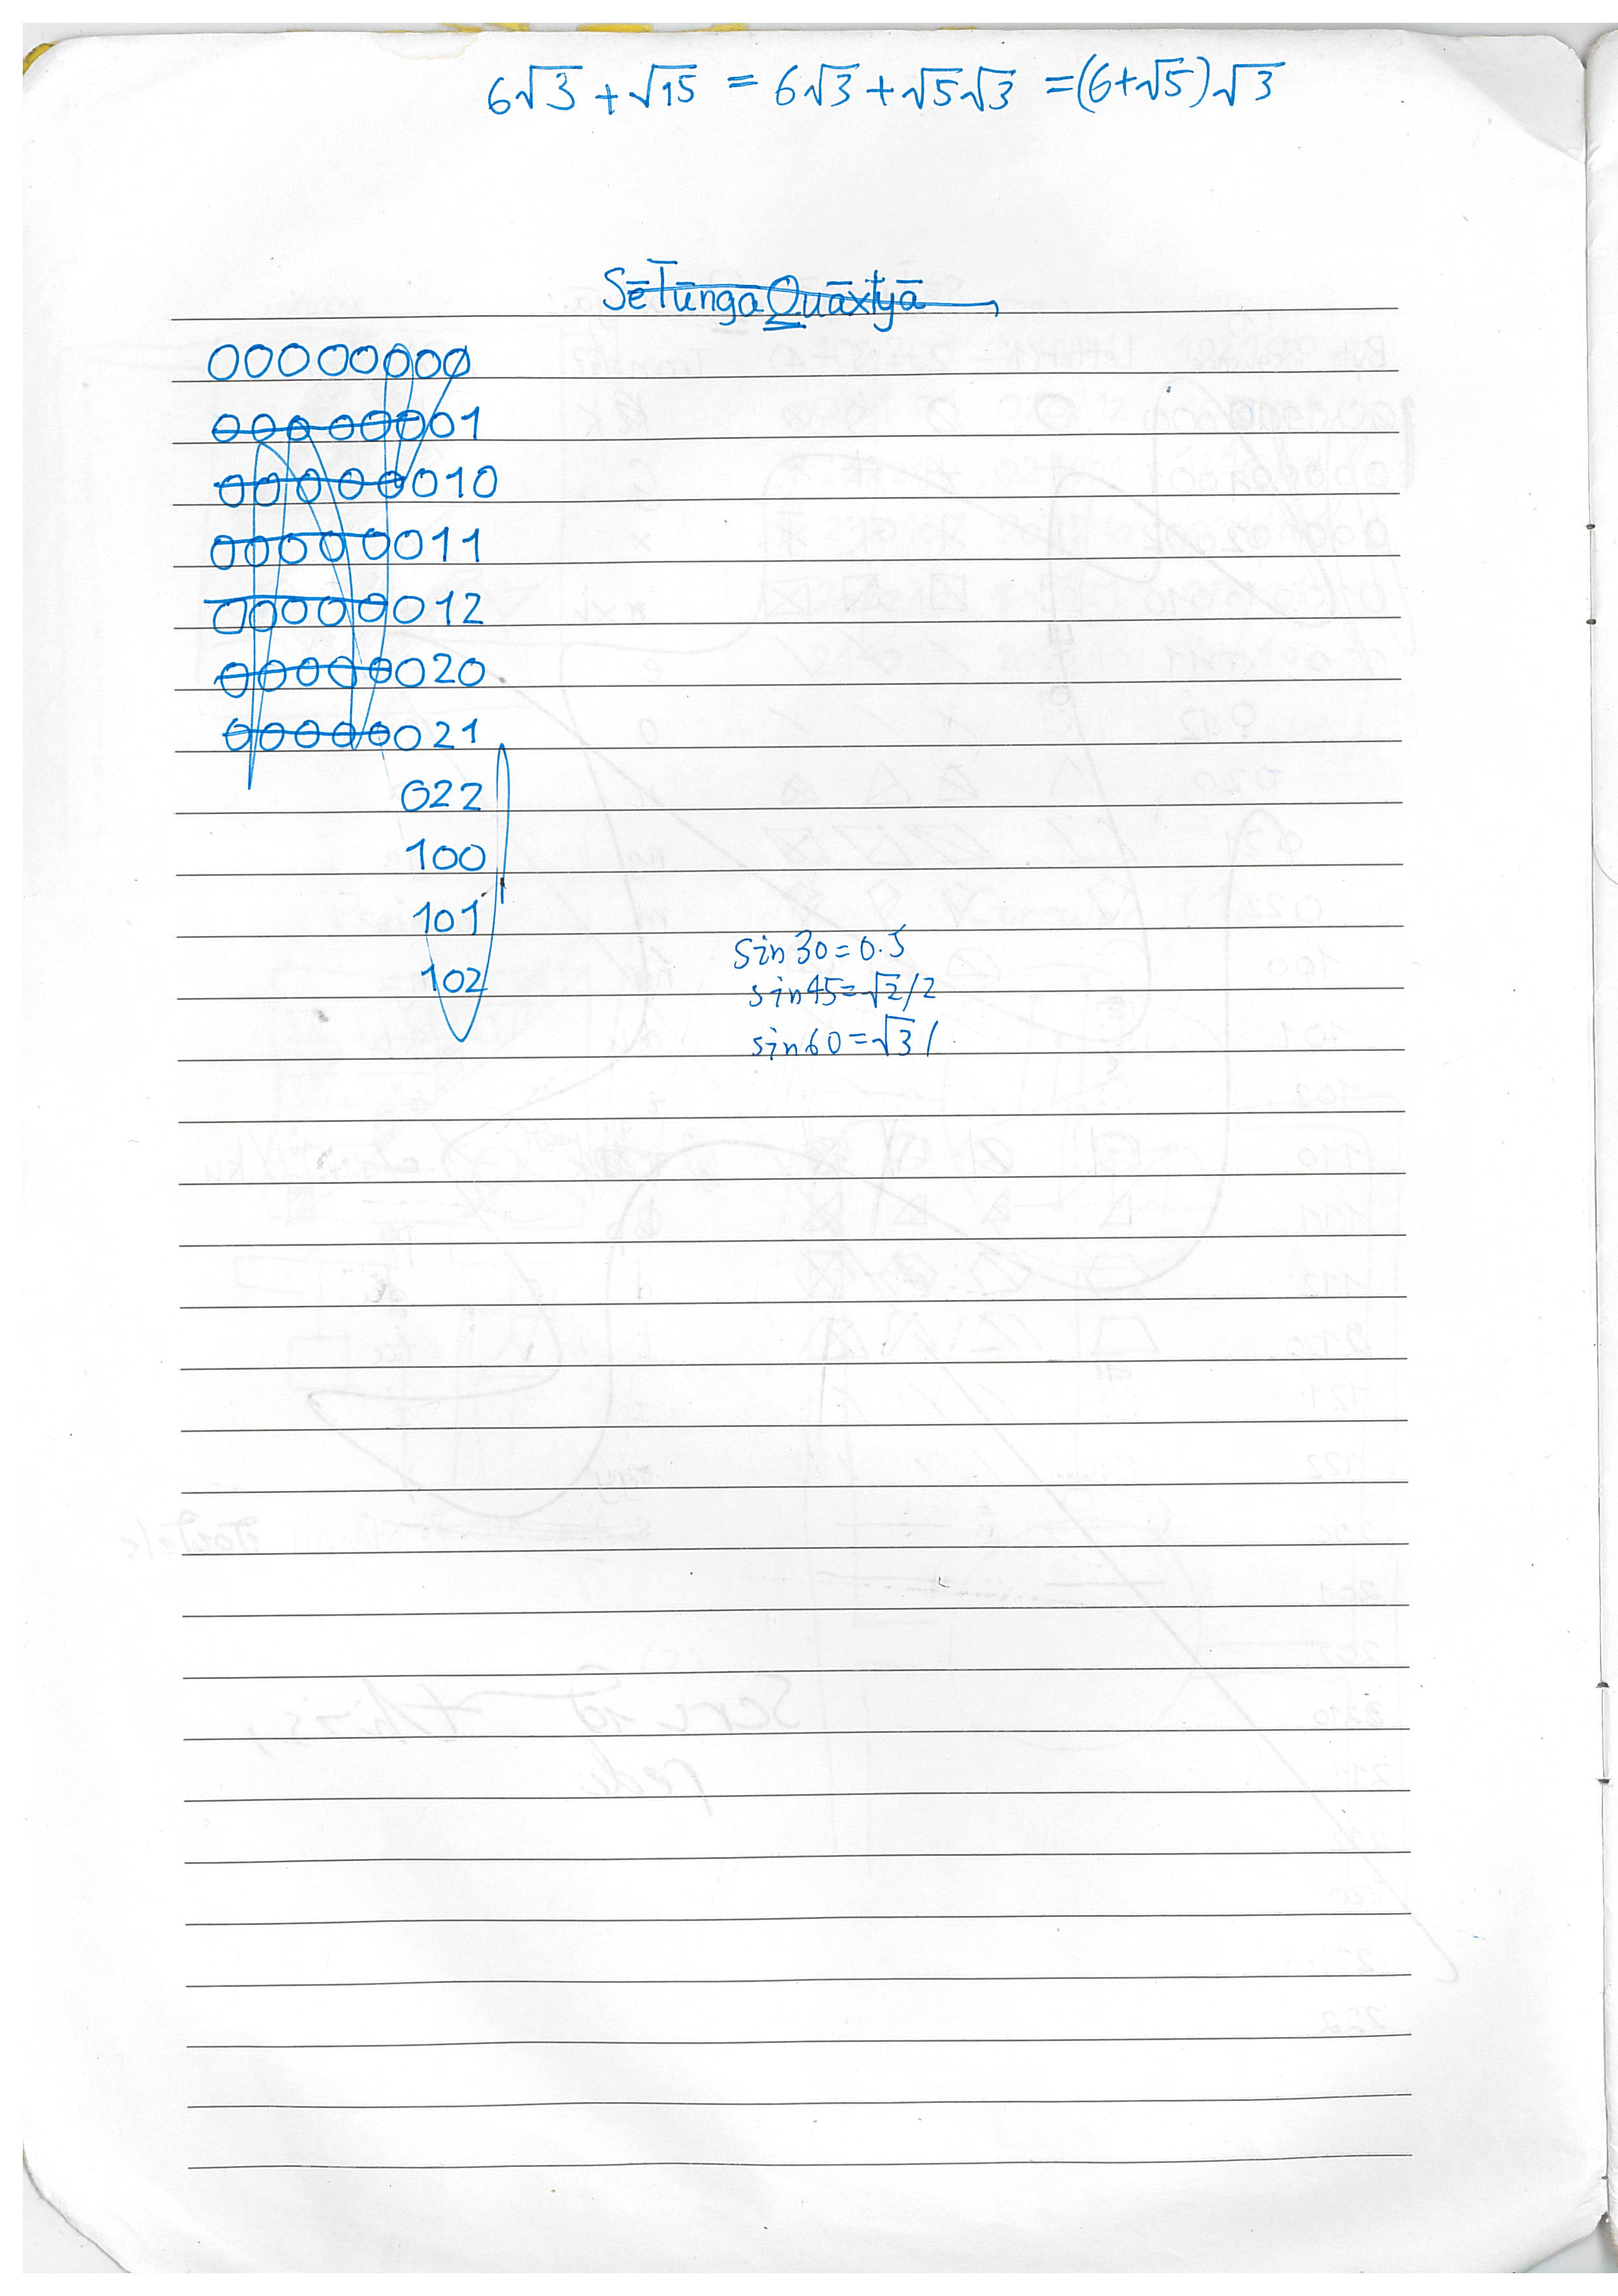 6√3 + √15 = 6√3 + √5√3 = (6+√5)√3
SēTūnga Quāxtyā
00000000
00000001
00000010
00000011
00000012
00000020
00000021
022
100
101
102
sin 30 = 0.5
sin 45 = √2/2
sin 60 = √3/